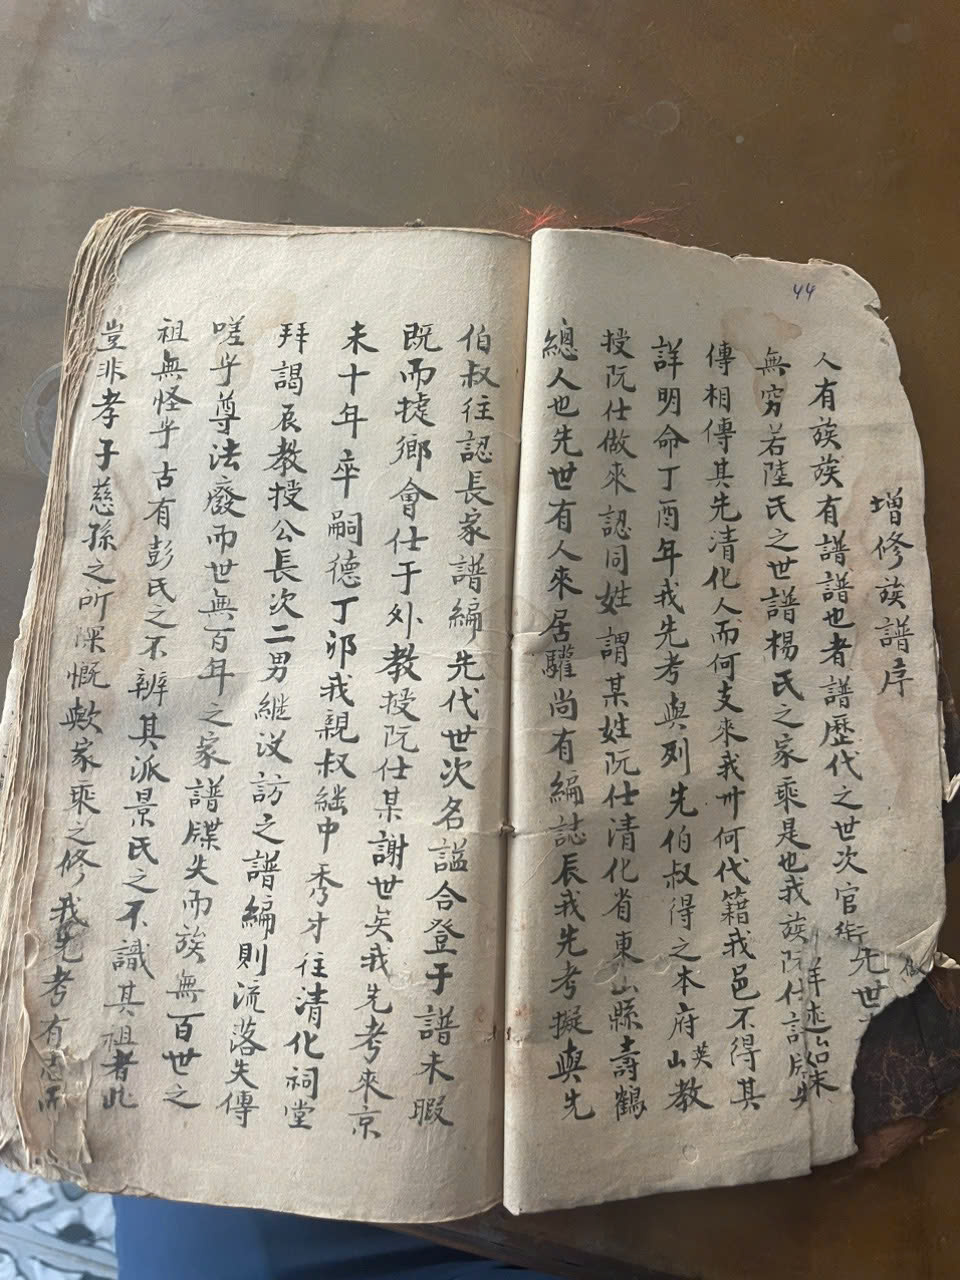 44
增修族譜序
人有族族有譜譜也者譜歷代之世次官
先世
無穷若陸氏之世譜楊氏之家乘是也我族阮仕
詳述始末
傳相傳其先清化人而何支來我卅何代籍我邑不得其
詳明命丁酉年我先考與列先伯叔得之本府英山教
授阮仕做來認同姓謂某姓阮仕清化省東山縣壽鶴
總人也先世有人來居驩尚有編誌辰我先考擬與先
伯叔往認長家譜編先代世次名諡合登于譜未暇
既而捷鄉會仕于外教授阮仕某謝世矣我先考來京
未十年卒嗣德丁卯我親叔繼中秀才往清化祠堂
拜謁辰教授公長次二男継没訪之譜編則流落失傳
嗟乎尊法廢而世無百年之家譜牒失而族無百世之
祖無怪乎古有彭氏之不辨其派景氏之不識其祖者此
豈非孝子慈孫之所深慨歟家乘之修我先考有志而